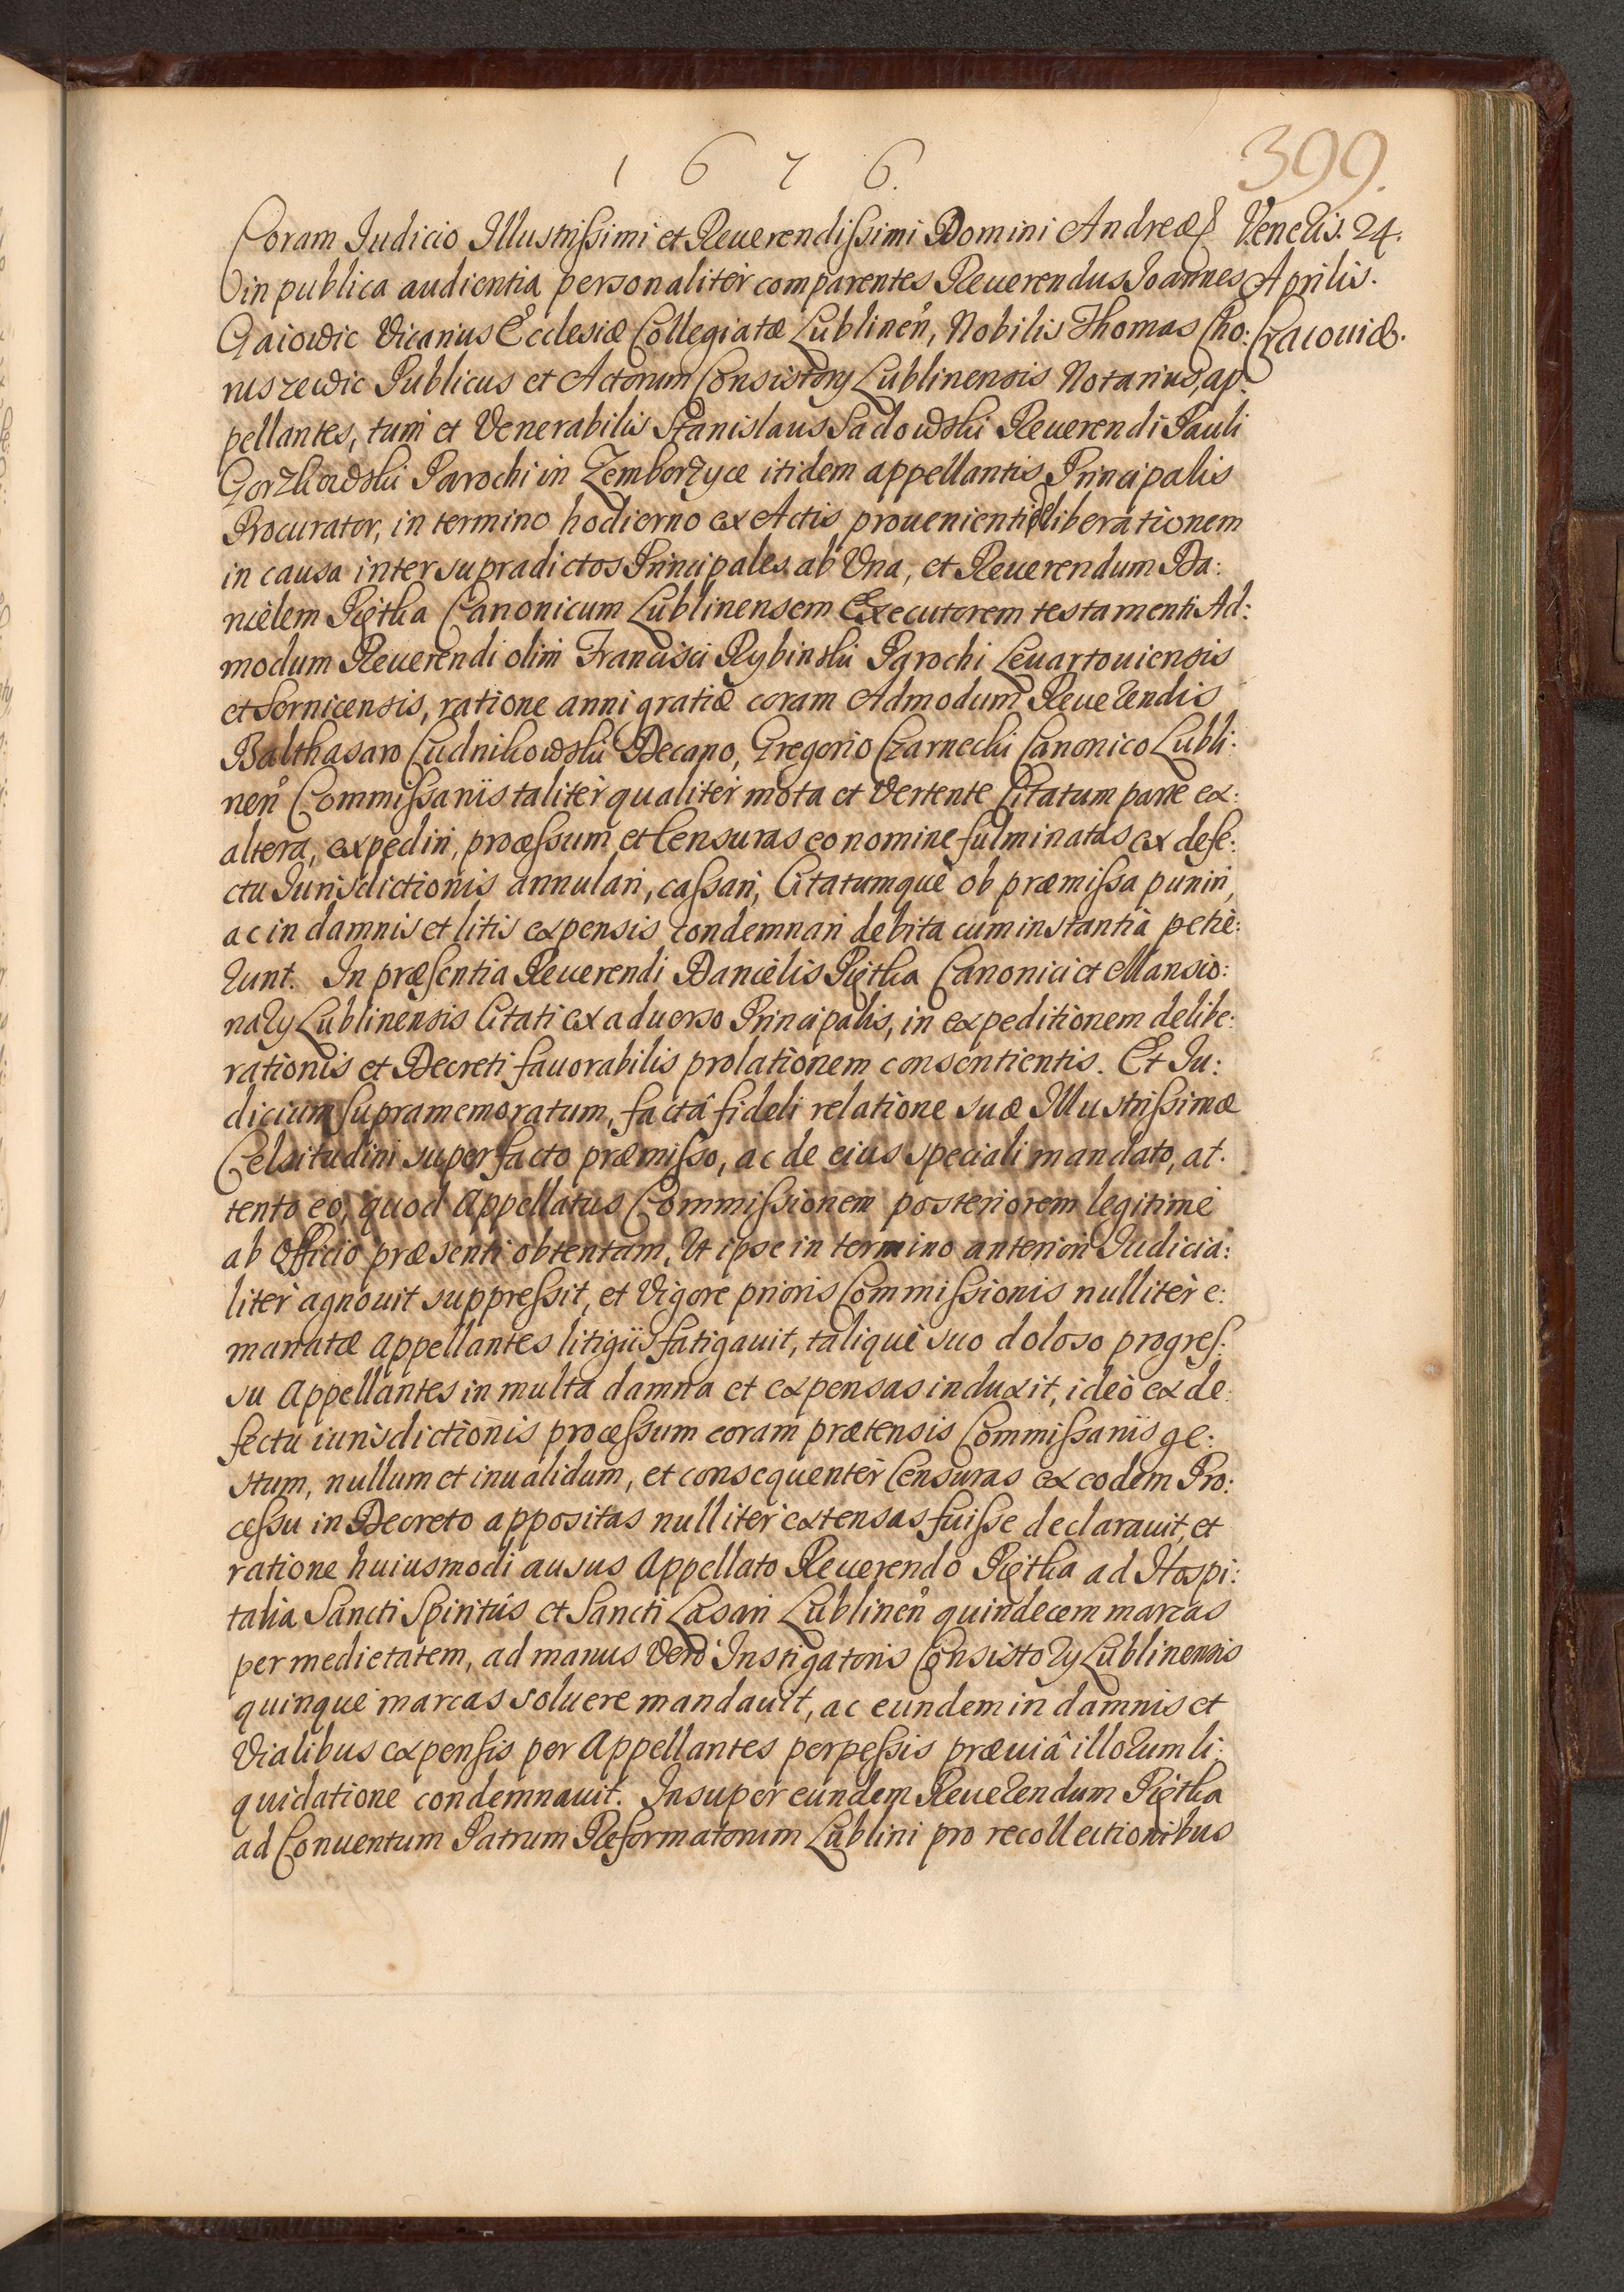 1 6 7 6.
399.
Coram Iudicio Illustrißimi et Reuerendißimi Domini Andreæ
Veneris. 24.
in publica audientia personalitèr comparentes Reuerendus Ioannes
Aprilis.
Gaiowic Vicarius Ecclesiæ Collegiatæ Lublinen̊, Nobilis Thomas Cho:
Cracouiæ.
ruszewic Publicus et Actorum Consistory Lublinensis Notarius, ap-
pellantes, tum et Venerabilis Stanislaus Sadowski Reuerendi Pauli
Gorzkowski Parochi in Zemborzyce itidem appellantis Principalis
Procurator, in termino hodierno ex Actis prouenienti deliberationem
in causa inter supradictos Principales ab Vna, et Reuerendum Da:
nielem Piętka Canonicum Lublinensem Executorem testamenti Ad:
modum Reuerendi olim Francisci Rybinski Parochi Leuartouiensis
et Sernicensis, ratione anni gratiæ coram Admodum Reuerendis
Balthasaro Cudnikowski Decano, Gregorio Czarnecki Canonico Lubli:
nen̊ Commißarijs talitèr qualitèr mota et Vertente Citatum parte ex:
altera, expediri, proceßum et Censuras eo nomine fulminatas ex defe:
ctu Iurisdictionis annulari, caßari, Citatumquè ob præmißa puniri,
ac in damnis et litis expensis condemnari debita cum instantia petiè:
runt. In præsentia Reuerendi Danielis Piętka Canonici et Mansio:
nary Lublinensis Citati ex aduerso Principalis, in expeditionem delibe:
rationis et Decreti fauorabilis prolationem consentientis. Et Iu:
dicium supramemoratum, factâ fideli relatione suæ Illustrißimæ
Celsitudini super facto præmißo, ac de eius speciali mandato, at-
tento eo, quod Appellatus Commißionem posteriorem legitimè
ab Officio præsenti obtentam, Vt ipse in termino anteriori Iudicia:
litèr agnouit suppreßit, et Vigore prioris Commißionis nullitèr e:
manatæ Appellantes litigijs fatigauit, taliquè suo doloso progres:
su Appellantes in multa damna et expensas induxit, ideò ex de:
fectu iurisdictionis proceßum coram prætensis Commißarijs ge:
stum, nullum et inualidum, et consequentèr Censuras ex eodem Pro:
ceßu in Decreto appositas nullitèr extensas fuiße declarauit, et
ratione huiusmodi ausus Appellato Reuerendo Piętka ad Hospi:
talia Sancti Spiritûs et Sancti Lasari Lublinen̊ quindecem marcas
per medietatem, ad manus Verò Instigatoris Consistory Lublinensis
quinque marcas soluere mandauit, ac eundem in damnis et
Vialibus expensis per Appellantes perpeßis præuiâ illorum li:
quidatione condemnauit. Insuper eundem Reuerendum Piętka
ad Conuentum Patrum Reformatorum Lublini pro recollectionibus